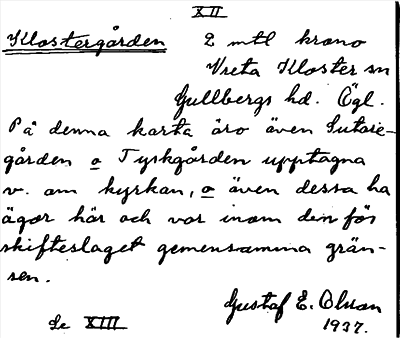 XII
Klostergården 2 mtl krono
Vreta Kloster sn
Gullbergs hd. Ögl.
På denna karta äro även Sutare-
gården o Tyskgården upptagna
v. om kyrkan, o även dessa ha
ägor här och var inom den för
skifteslaget gemensamma grän-
sen.
Gustaf E. Olsson
1937.
Se XIII